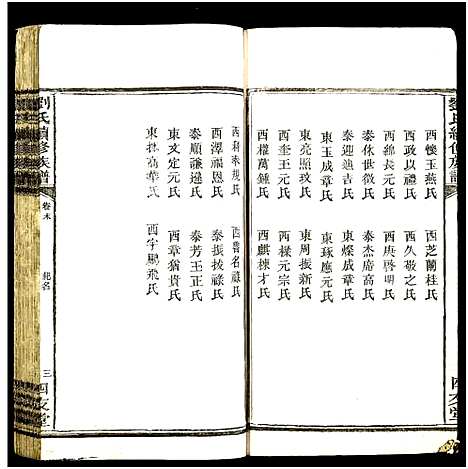 劉氏續修族譜
西懷玉燕氏
西芝蘭桂氏
西政以禮氏
西久敬之氏
西綿長元氏
西庚啓明氏
泰休世徵氏
泰杰磨高氏
泰迎迪吉氏
東燦成章氏
東玉成章氏
東琢應元氏
東亮照玟氏
東周振新氏
西奎王元氏
西樑元宗氏
西權萬鍾氏
西麒棟才氏
西魯名祿氏
西澤福恩氏
泰振援祿氏
泰順祿遠氏
泰芳王正氏
東文定元氏
西章猶貴氏
東林高華氏
西宇鵬飛氏
劉氏續修族譜
卷末
三
四友堂